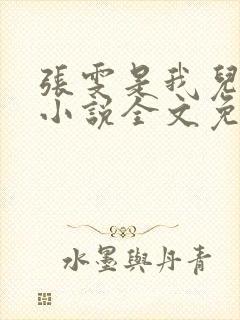 張雯是我兒
小說全文免
水墨與丹青